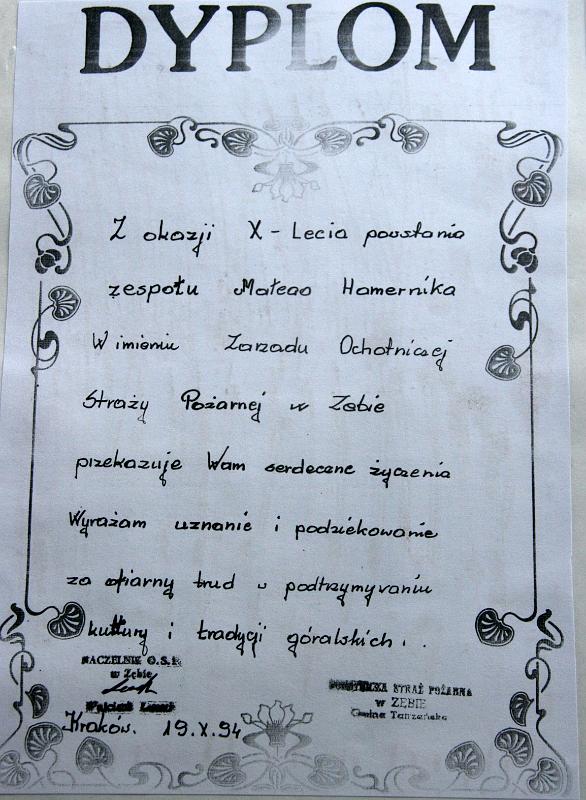 DYPLOM
Z okazji X-Lecia powstania
zespołu Małego Hamernika
W imieniu Zarządu Ochotniczej
Straży Pożarnej w Zębie
przekazuje Wam serdeczne życzenia
Wyrażam uznanie i podziękowanie
za ofiarny trud w podtrzymywaniu
kultury i tradycji góralskich..
NACZELNIK O.S.P.
w Zębie
STRAŻ POŻARNA
w ZĘBIE
Gmina Tatrzańska
Kraków. 19.X.94